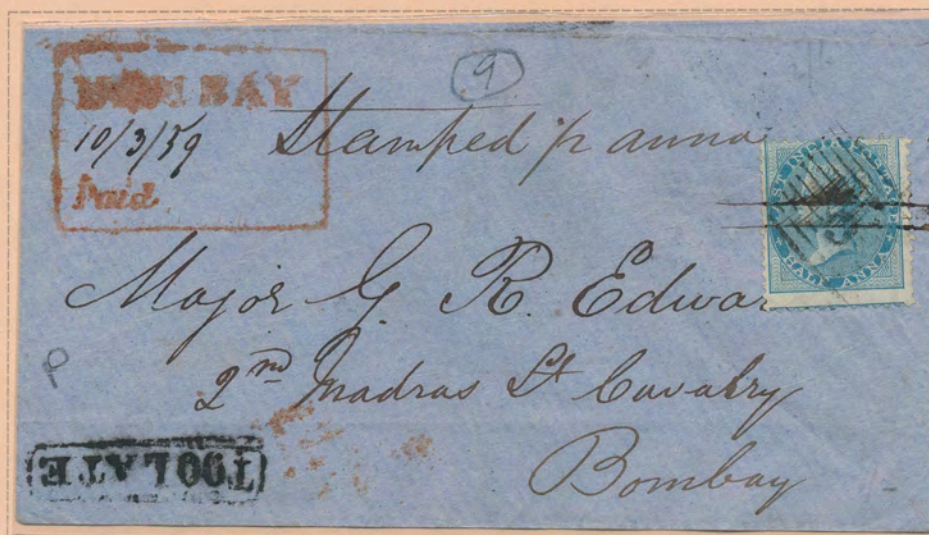 9
BOMBAY
10/3/59 Stamped ½ anna
Paid
Major G. R. Edwar
2nd Madras Lt Cavalry
Bombay
TOO LATE